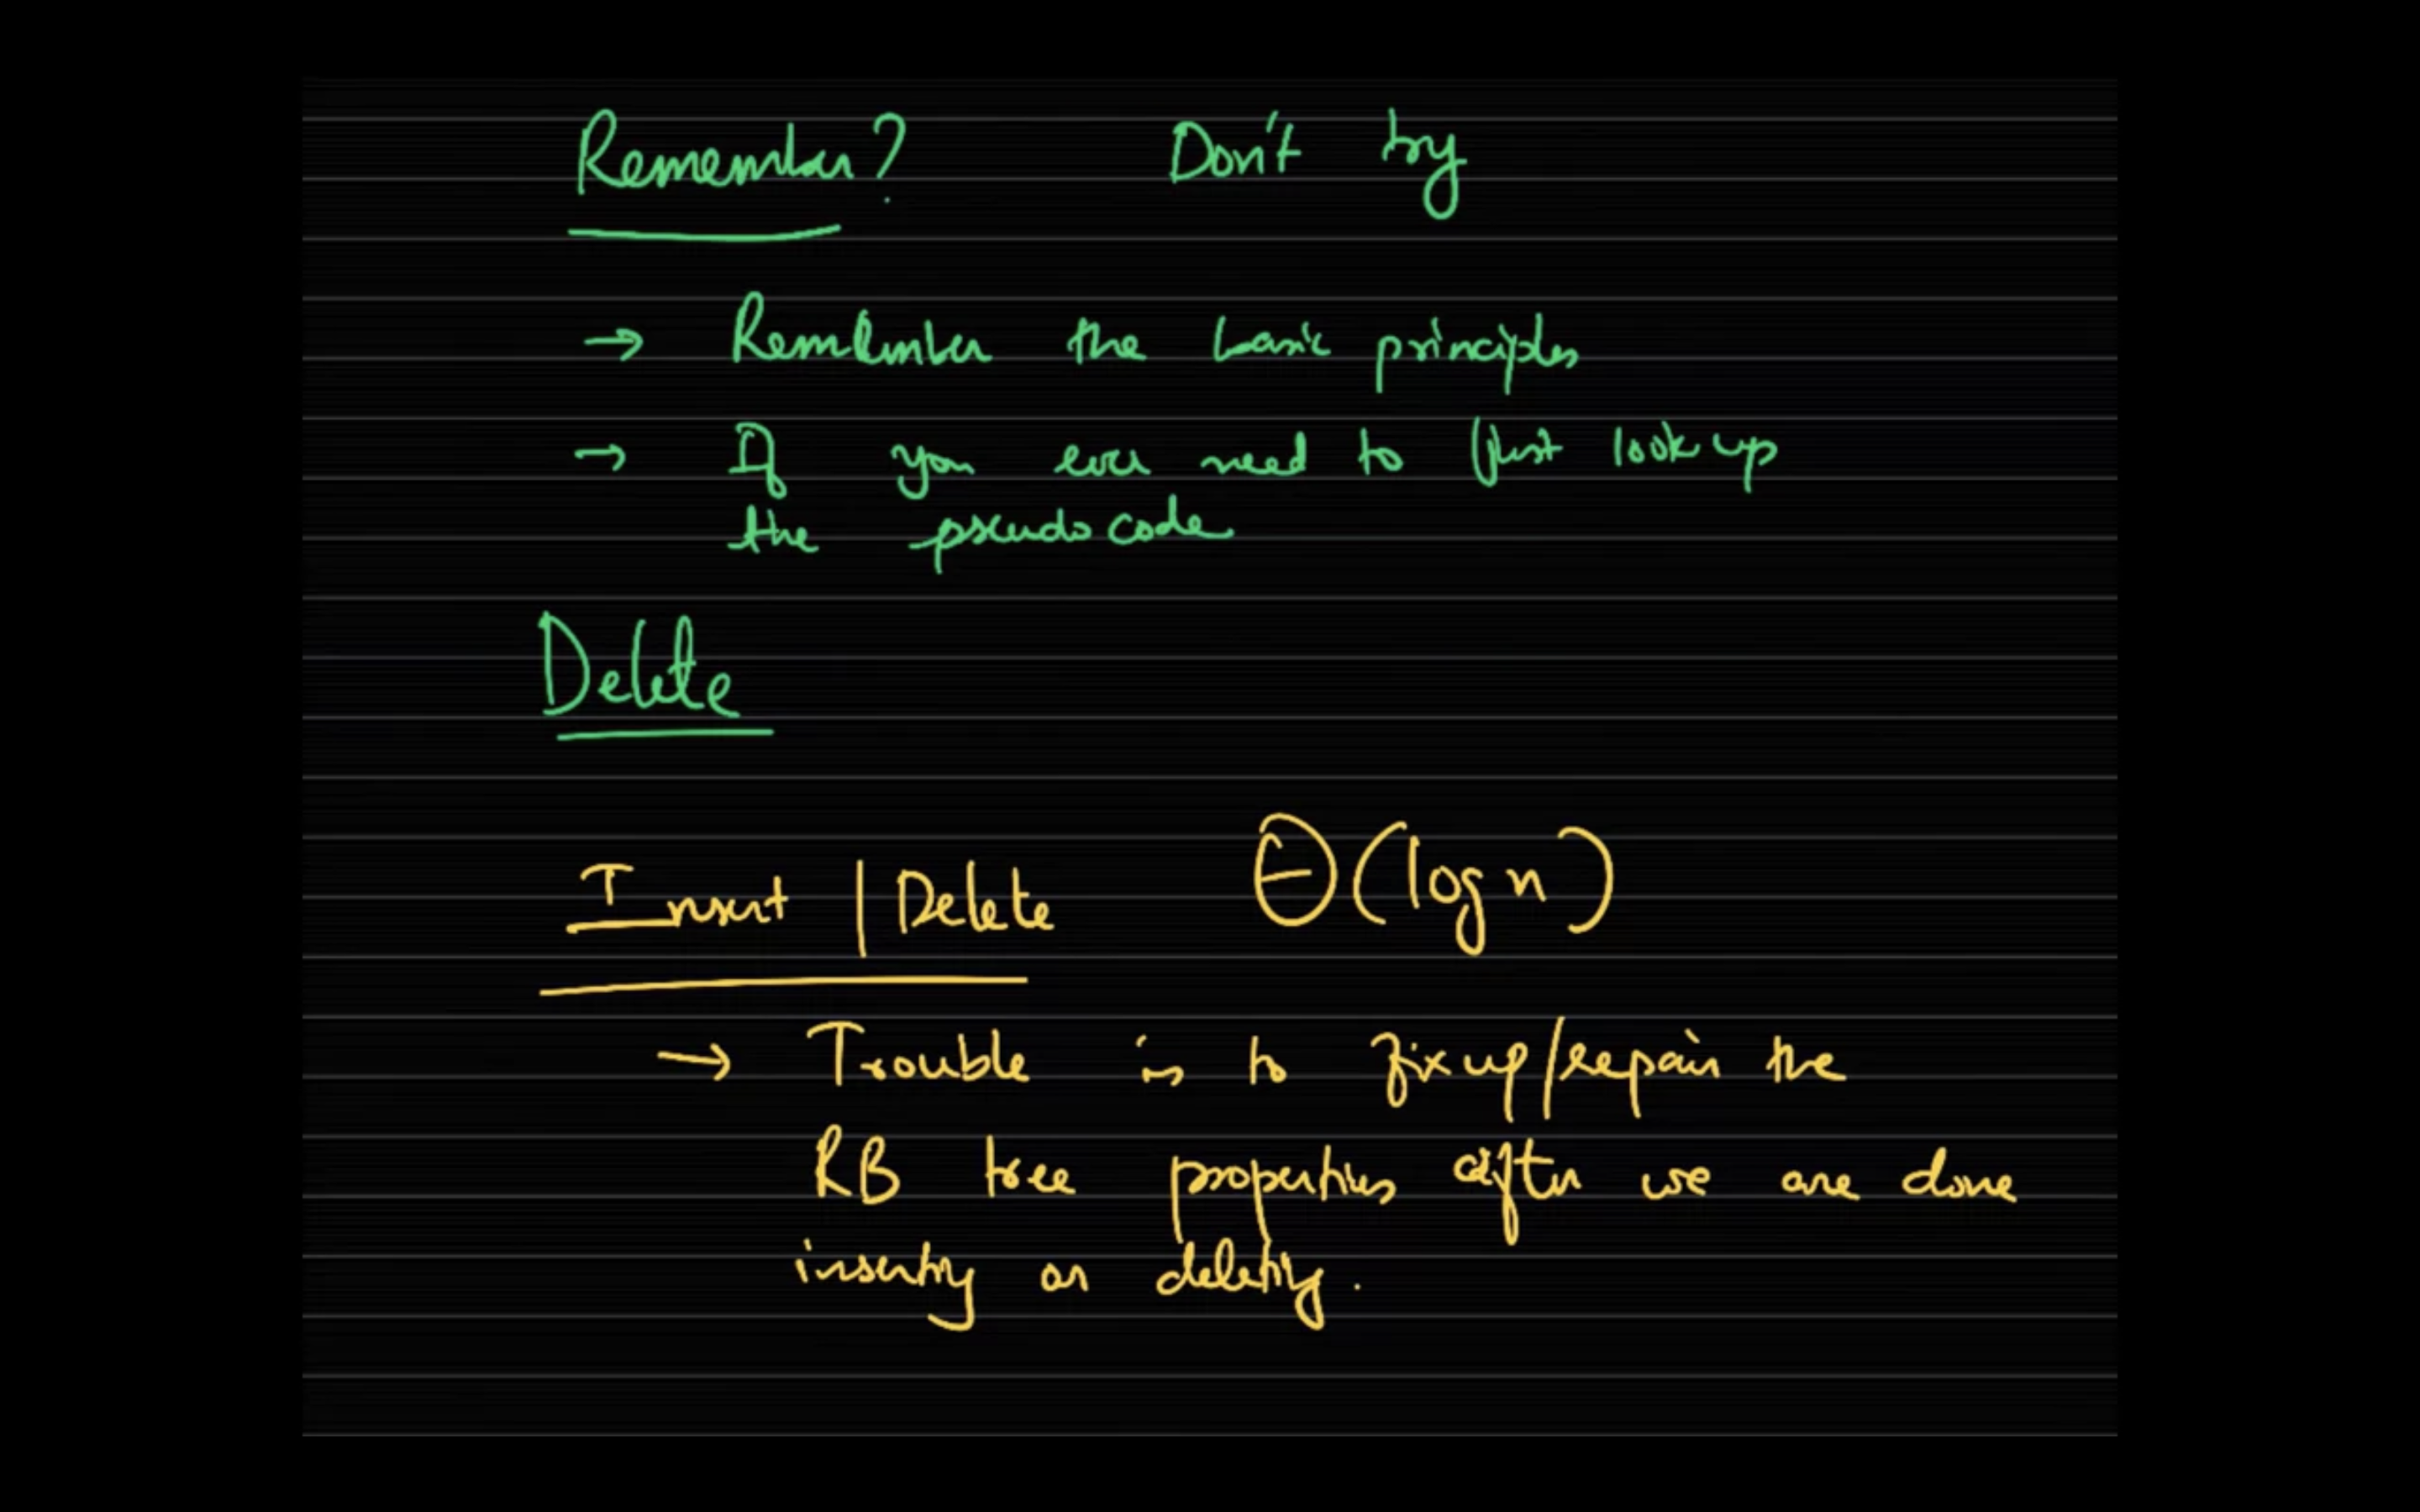 Remember? Don't try
→ Remember the basic principles
→ If you ever need to just look up
the pseudo code
Delete
Insert | Delete Θ(log n)
→ Trouble is to fix up/repair the
RB tree properties after we are done
inserting or deleting.